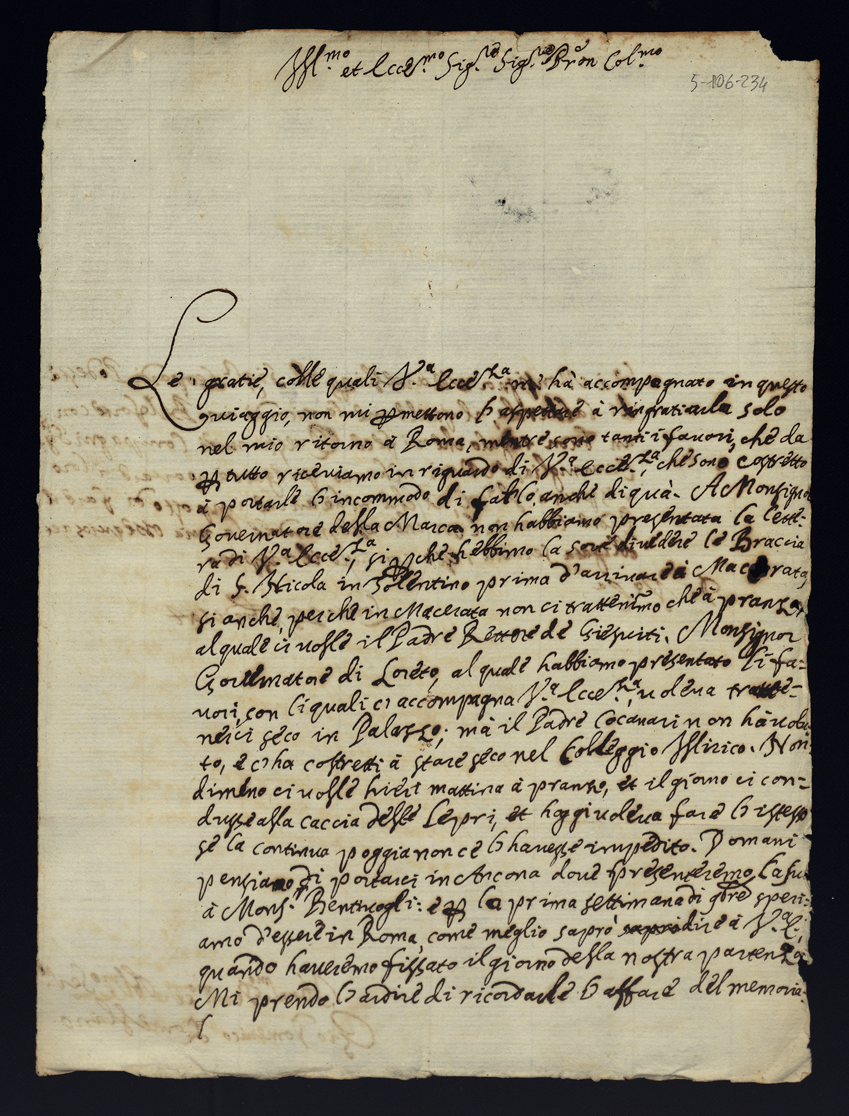 Ill.mo et Ecce.mo Sig.re Sig.re Pron Col.mo
5-106-234
Le gratie, colle quali V.a Ecce.za mi hà accompagnato in questo
viaggio, non mi pmettono l'aspettare à ringratiarla solo
nel mio ritorno à Roma, mentre sono tanti i favori, che da
p tutto riceviamo in riguardo di V.a Ecce.za, che sono costretto
à portarle l'incommodo di farlo anche di quà. A Monsignor
Governatore della Marca non habbiamo presentata la lette-
ra di V.a Ecce.za, si pche hebbimo la sorte di vedere le Braccia
di S. Nicola in Tolentino prima d'arrivare à Macerata,
si anche, perche in Macerata non ci trattenimo che à pranzo,
al quale ci volle il Padre Rettore de Giesuiti. Monsignor
Governatore di Loreto, al quale habbiamo presentato li fa-
vori, con li quali ci accompagna V.a Ecce.za, voleva tratte-
nerci seco in Palazzo; mà il Padre Cocanari non hà volu-
to, e ci ha costretti à stare seco nel Colleggio Illirico. Non
dimeno ci volle hieri mattina à pranzo, et il giorno ci con-
dusse alla caccia delle Lepri, et hoggi voleva fare l'istesso
se la continua poggia non ce l'havesse impedito. Domani
pensiamo di portarci in Ancona dove presenteremo la sua
à Mons.r Bentivogli: e p la prima settimana di 9bre speri-
amo d'essere in Roma, come meglio saprò dire à V.a E.,
quando haveremo fissato il giorno della nostra partenza.
Mi prendo l'ardire di ricordarle l'affare del memoria-
l